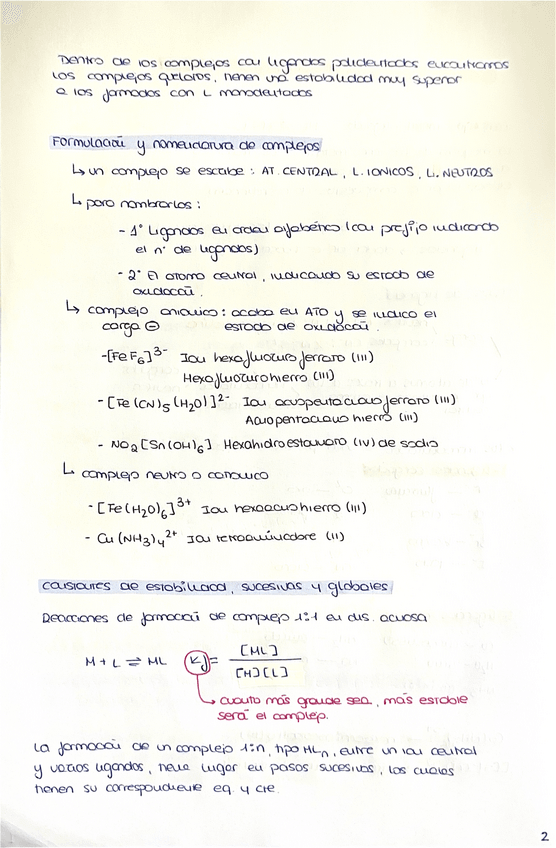 Dentro de los complejos con ligandos polidentados encontramos
los complejos quelatos, tienen una estabilidad muy superior
a los formados con L monodentados
Formulación y nomenclatura de complejos
↳ un complejo se escribe : AT. CENTRAL , L. IONICOS , L. NEUTROS
↳ para nombrarlos :
- 1° Ligandos en orden alfabético (con prefijo indicando
el n° de ligandos)
- 2° El átomo central, indicando su estado de
oxidación.
↳ complejo aniónico : acaba en ATO y se indica el
carga ⊖ estado de oxidación.
-[FeF6]3- Ion hexafluoruro ferrato (III)
Hexafluorurohierro (III)
- [Fe(CN)5(H2O)]2- Ion acuopentaciano ferrato (III)
Acuopentaciano hierro (III)
- NO2[Sn(OH)6] Hexahidroestannato (IV) de sodio
↳ complejo neutro o catiónico
- [Fe(H2O)6]3+ Ion hexaacuohierro (III)
- Cu(NH3)42+ Ion tetraaminocobre (II)
constantes de estabilidad, sucesivas y globales
Reacciones de formación de complejo 1:1 en dis. acuosa
M + L ⇌ ML Kf = [ML] / [M][L]
↳ cuanto más grande sea, más estable
será el complejo.
La formación de un complejo 1:n, tipo MLn, entre un ion central
y varios ligandos, tiene lugar en pasos sucesivos, los cuales
tienen su correspondiente eq. y cte.
2